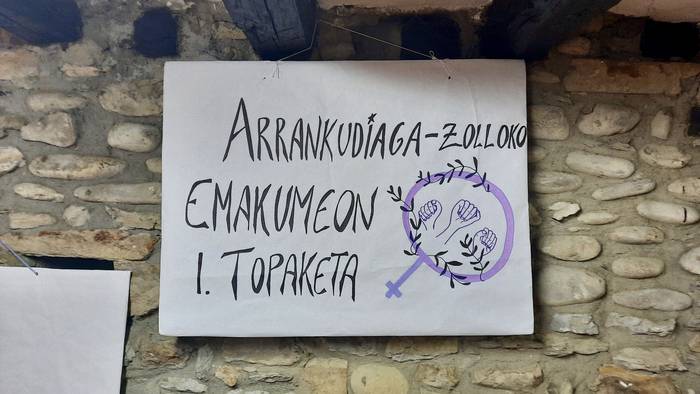 ARRANKUDIAGA-ZOLLOKO
EMAKUMEON
I. TOPAKETA